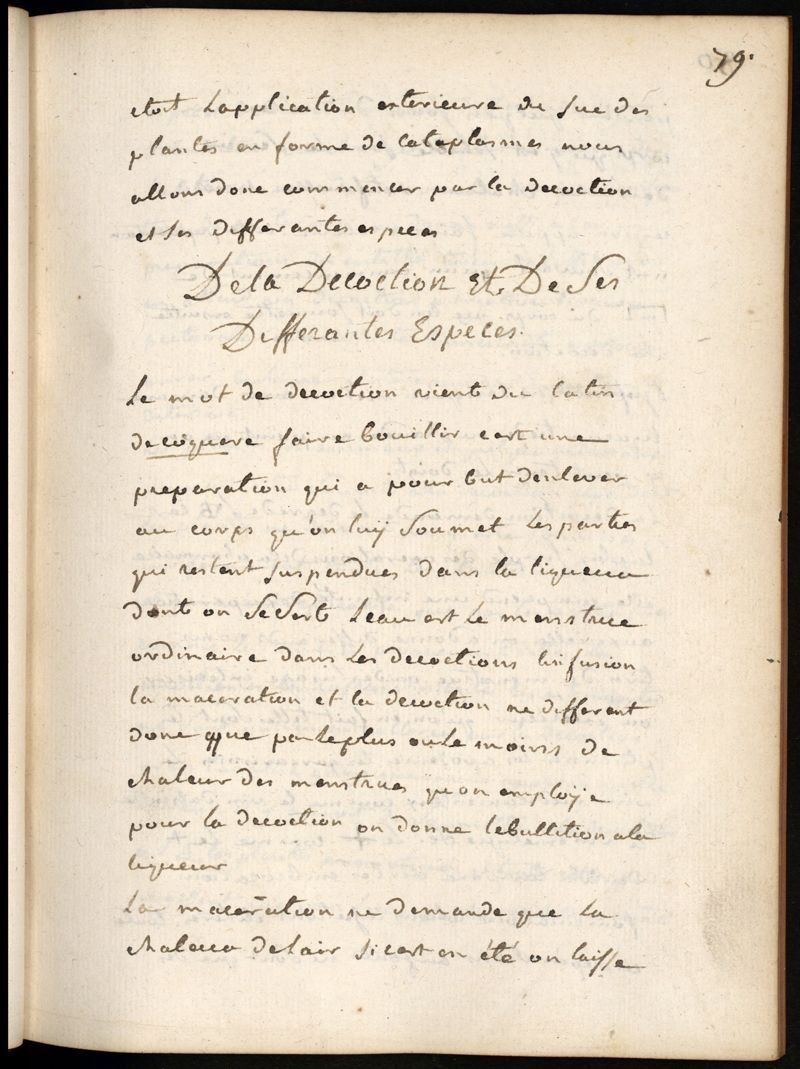 79.
etoit Lapplication exterieure du suc des
plantes en forme de cataplasmes nous
allons donc commencer par la decoction
et ses differantes especes
De la Decoction Et De Ses
Differantes Especes.
Le mot de decoction vient du latin
decoquere faire bouillir cest une
preparation qui a pour but denlever
au corps qu'on luy Soumet Les parties
qui restent suspendues dans la liqueur
dont on Se Sert Leau est Le menstrue
ordinaire dans Les decoctions linfusion
la maceration et la decoction ne different
donc que par Le plus ou Le moins de
chaleur des menstrues qu'on employe
pour la decoction on donne lebullition a la
liqueur
La maceration ne demande que La
chaleur de Lair si cest en été on laisse